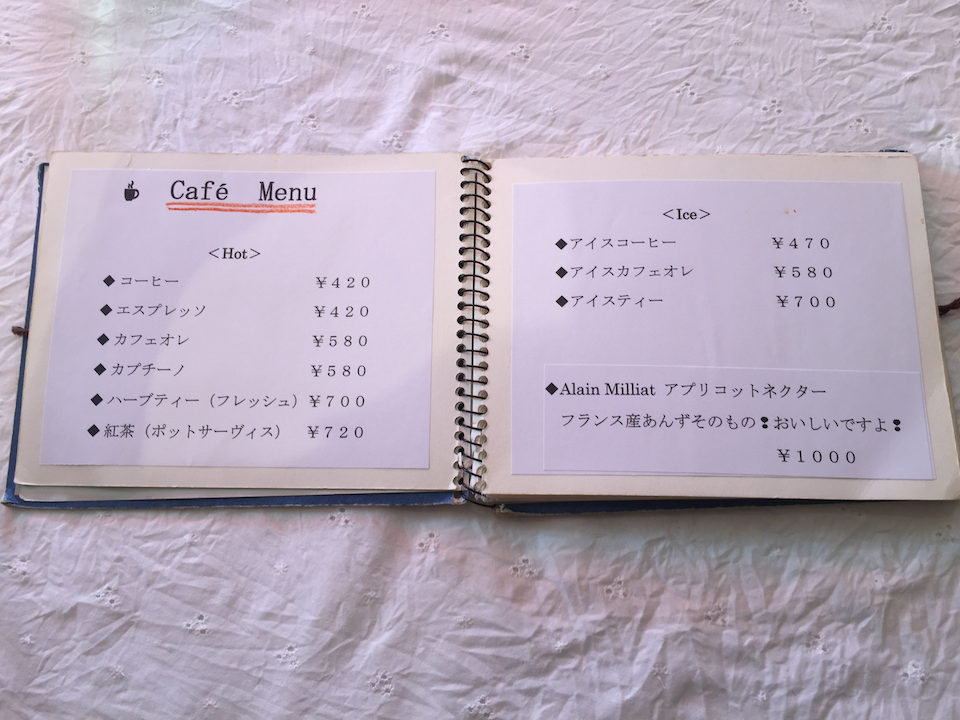 Café Menu
＜Hot＞
◆ コーヒー ￥４２０
◆ エスプレッソ ￥４２０
◆ カフェオレ ￥５８０
◆ カプチーノ ￥５８０
◆ ハーブティー（フレッシュ） ￥７００
◆ 紅茶（ポットサーヴィス） ￥７２０
＜Ice＞
◆アイスコーヒー ￥４７０
◆アイスカフェオレ ￥５８０
◆アイスティー ￥７００
◆Alain Milliat アプリコットネクター
フランス産あんずそのもの❢おいしいですよ❢
￥１０００